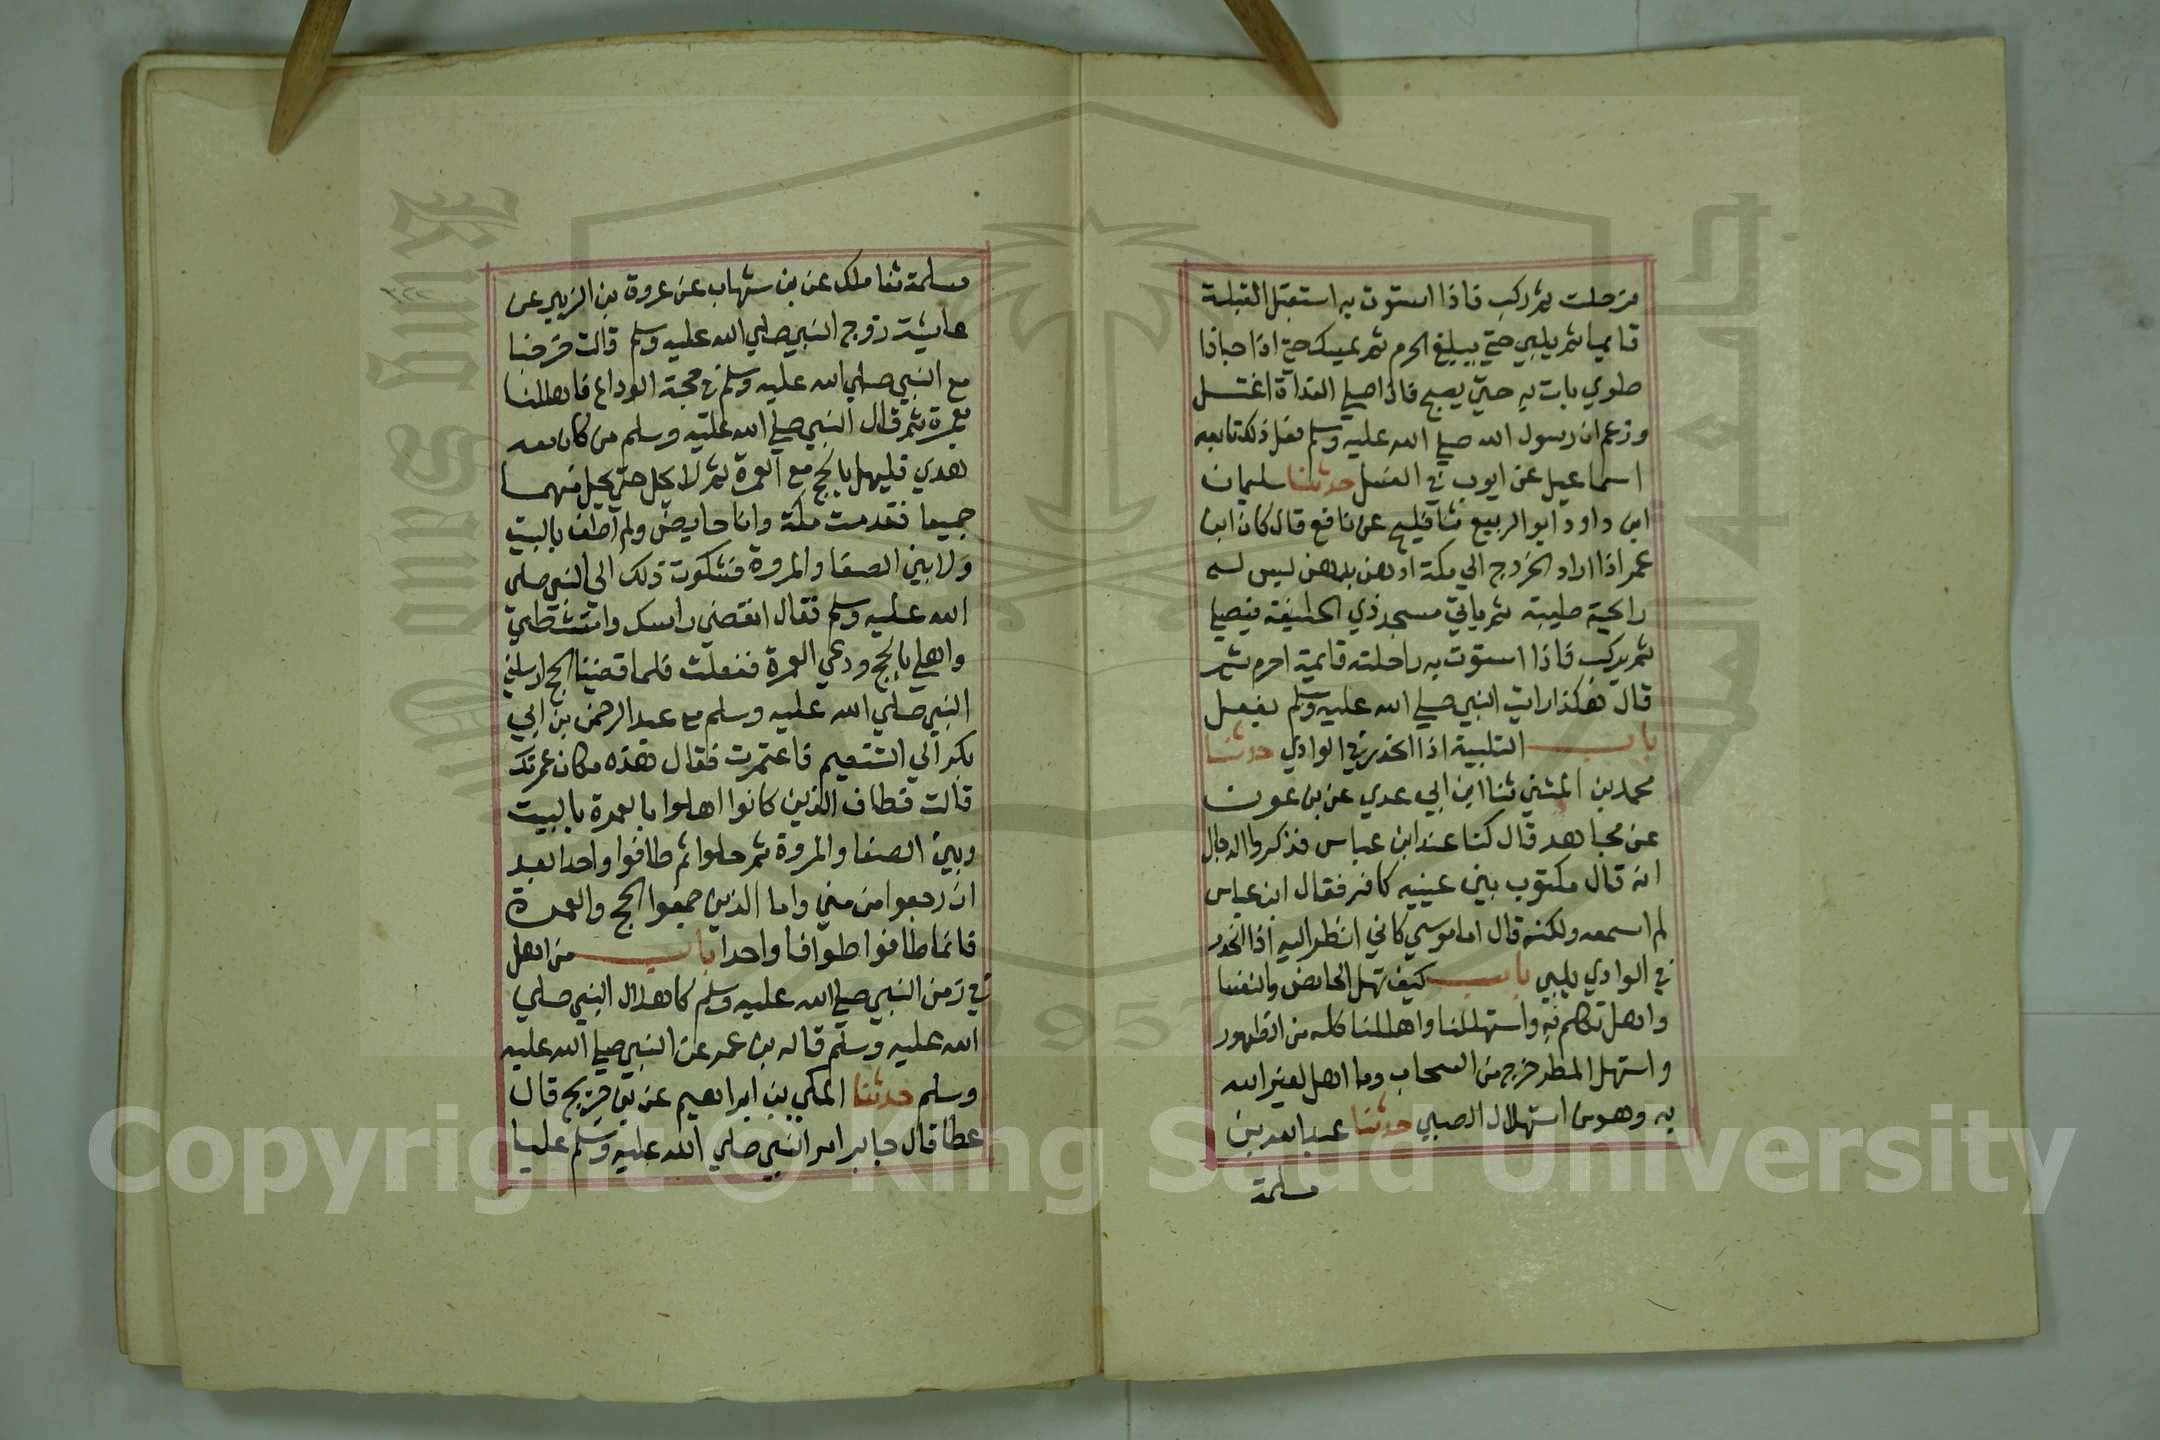 فرحلت ثم ركب فاذا استوت به استقبل القبلة
قايما ثم يلبي حتي يبلغ الحرم ثم يمسك حتي اذا جاذا
طوي بات به حتي يصبح فاذا صلي الغداة اغتسل
وزعم ان رسول الله صلي الله عليه وسلم فعل ذلك تابعه
اسماعيل عن ايوب في الغسل حدثنا سليمان
ابن داود ابو الربيع ثنا فليح عن نافع قال كان ابن
عمر اذا اراد الخروج الي مكة ادهن بدهن ليس له
رايحة طيبة ثم ياتي مسجد ذي الحليفة فيصلي
ثم يركب فاذا استوت به راحلته قايمة احرم ثم
قال هكذا رايت النبي صلي الله عليه وسلم يفعل
باب التلبية اذا انحدر في الوادي حدثنا
محمد بن المثني ثنا ابن ابي عدي عن بن عون
عن مجاهد قال كنا عند ابن عباس فذكروا الدجال
انه قال مكتوب بين عينيه كافر فقال ابن عباس
لم اسمعه ولكنه قال اما موسي كاني انظر اليه اذا انحدر
في الوادي يلبي باب كيف تهل الحايض والنفسا
واهل تكلم به واستهللنا واهللنا كله من الظهور
واستهل المطر خرج من السحاب وما اهل لغير الله
به وهو من استهلال الصبي حدثنا عبد الله بن
مسلمة
مسلمة ثنا ملك عن بن شهاب عن عروة بن الزبير عن
عايشة زوج النبي صلي الله عليه وسلم قالت خرجنا
مع النبي صلي الله عليه وسلم في حجة الوداع فاهللنا
بعمرة ثم قال النبي صلي الله عليه وسلم من كان معه
هدي فليهل بالحج مع العمرة ثم لا يحل حتي يحل منهما
جميعا فقدمت مكة وانا حايض ولم اطف بالبيت
ولا بين الصفا والمروة فشكوت ذلك الي النبي صلي
الله عليه وسلم فقال انقضي راسك وامتشطي
واهلي بالحج ودعي العمرة ففعلت فلما قضينا الحج ارسلني
النبي صلي الله عليه وسلم مع عبد الرحمن بن ابي
بكر الي التنعيم فاعتمرت فقال هذه مكان عمرتك
قالت فطاف الذين كانوا اهلوا بالعمرة بالبيت
وبين الصفا والمروة ثم حلوا ثم طافوا واحدا بعد
ان رجعوا من مني واما الذين جمعوا الحج والعمرة
فانما طافوا طوافا واحدا باب من اهل
في زمن النبي صلي الله عليه وسلم كاهلال النبي صلي
الله عليه وسلم قاله بن عمر عن النبي صلي الله عليه
وسلم حدثنا المكي بن ابراهيم عن بن جريج قال
عطا قال جابر امر النبي صلي الله عليه وسلم عليا
Copyright © King Saud University
King Saud University
جامعة الملك
1957